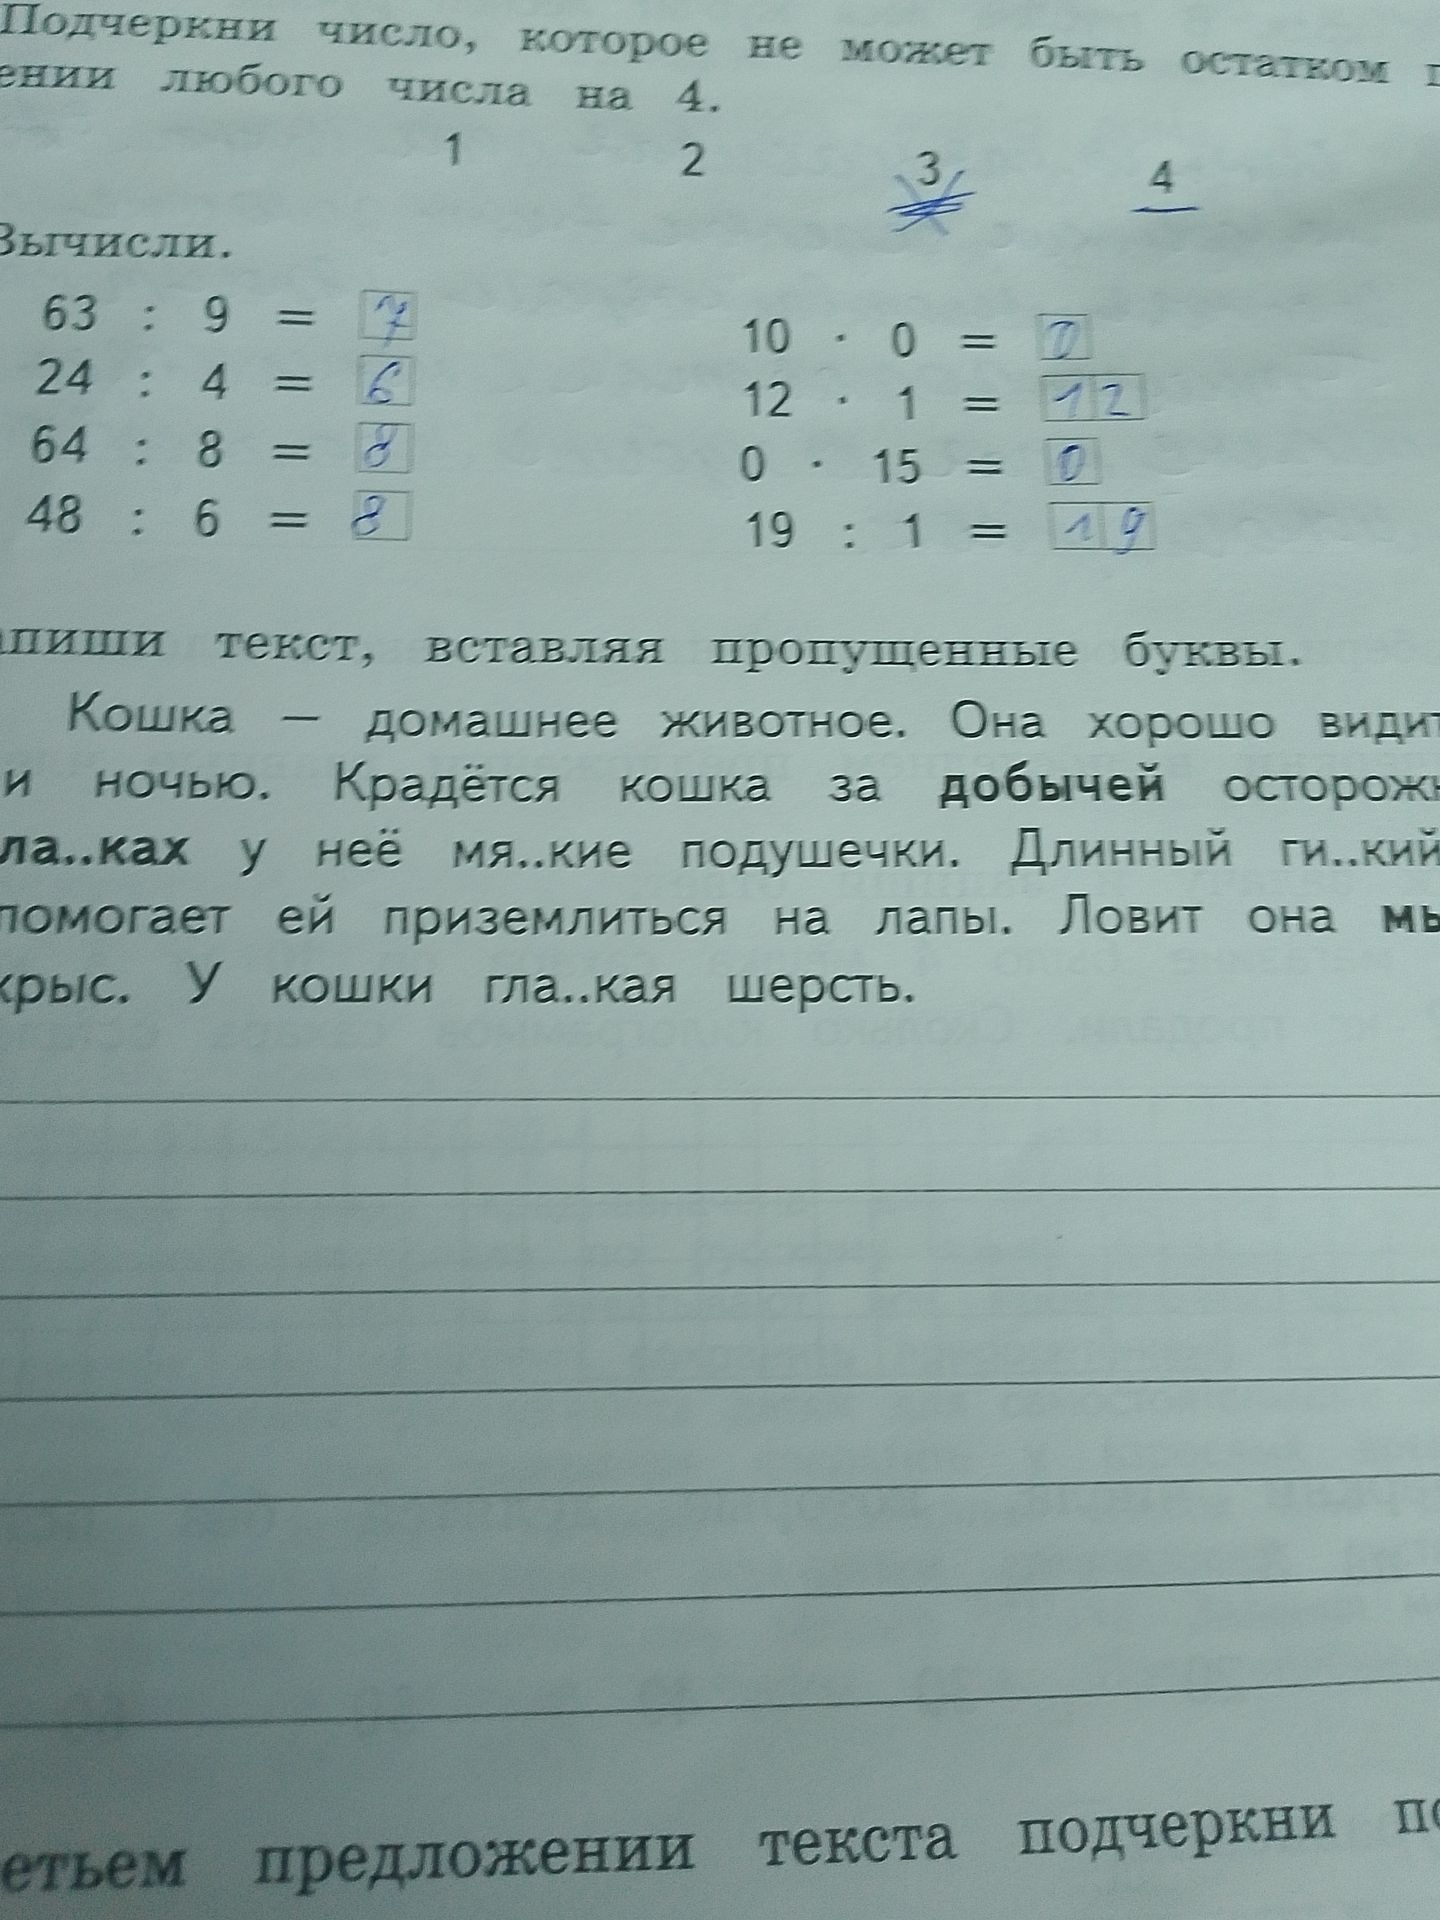 Подчеркни число, которое не может быть остатком п
ении любого числа на 4.
1 2 3 4
Вычисли.
63 : 9 = 7 10 · 0 = 0
24 : 4 = 6 12 · 1 = 12
64 : 8 = 8 0 · 15 = 0
48 : 6 = 8 19 : 1 = 19
апиши текст, вставляя пропущенные буквы.
Кошка — домашнее животное. Она хорошо видит
и ночью. Крадётся кошка за добычей осторожн
ла..ках у неё мя..кие подушечки. Длинный ги..кий
помогает ей приземлиться на лапы. Ловит она мы
крыс. У кошки гла..кая шерсть.
етьем предложении текста подчеркни по